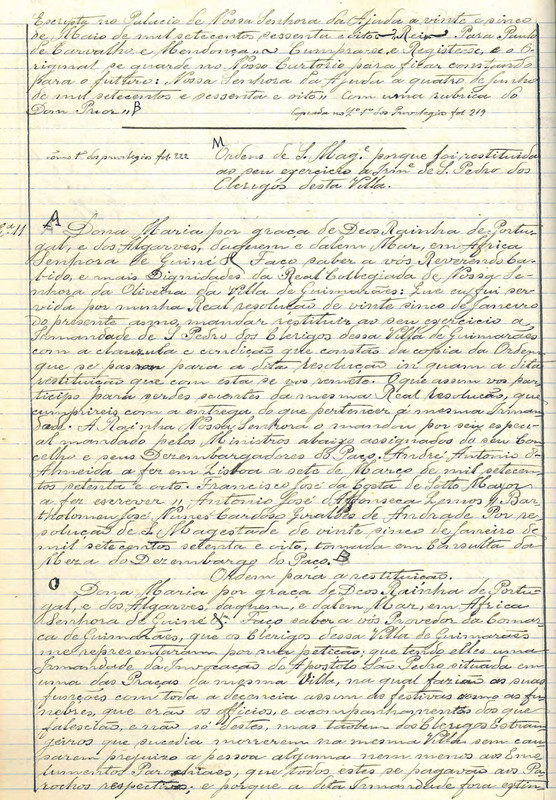 Escripta no Palacio de Nossa Senhora da Ajuda a vinte e sinco
de Maio de mil setecentos sessenta e oito Rei Para Paulo
de Carvalho e Mendonça Cumpra-se, e Registe-se, e o O-
riginal se guarde no Nosso Cartorio para ficar constando
para o futuro: Nossa Senhora da Ajuda a quatro de Junho
de mil setecentos e sessenta e oito,, Com uma rubrica do
Dom Prior,, B
Copiada no L.º 1.º dos Privilegios fol 219
L.º 1.º dos privilegios fol. 222
M
Ordens de S. Mag.e porque foi restituida
ao seu exercicio a Irm.e de S. Pedro dos
Clerigos desta Villa.
11
A Dona Maria por graça de Deos Rainha de Portu-
gal, e dos Algarves, daquem e dalem Mar, em Africa
Senhora de Guiné & Faço saber a vós Reverendo Ca-
bido, e mais Dignidades da Real Collegiada de Nossa Se-
nhora da Oliveira da Villa de Guimarães: Que eu fui ser-
vida por minha Real resolução de vinte sinco de Janeiro
do presente anno, mandar restituir ao seu exercicio a
Irmandade de S Pedro dos Clerigos dessa Villa de Guimarães
com a clauzula e condição que constão da copia da Ordem
que se passou para a dita resolução in quam a dita
restituição que com esta se vos remete. O que assim vos par-
ticipo para serdes scientes da mesma Real resolução, que
cumprireis com a entrega do que pertencer á mesma Irman-
dade. A Rainha Nossa Senhora o mandou por seu especi-
al mandado pelos Ministros abaixo assignados do seu Con-
celho e seus Dezembargadores do Paço. André Antonio d-
Almeida a fez em Lisboa a sete de Março de mil setecen-
tos setenta e oito. Francisco José da Costa de Sotto Mayor
a fez escrever,, Antonio José d'Affonseca Lemos,, Bar-
tholomeu José Nunes Cardoso Geraldes de Andrade Por re-
solução de S. Magestade de vinte sinco de Janeiro de
mil setecentos setenta e oito, tomada em Consulta da
Meza do Dezembargo do Paço. B
Ordem para a restituição.
O Dona Maria por graça de Deos Rainha de Portu-
gal, e dos Algarves, daquem, e dalem Mar, em Africa
Senhora de Guiné & Faço saber a vós Provedor da Comar-
ca de Guimarães, que os Clerigos dessa Villa de Guimarães
me reprezentaram por sua petição, que tendo elles uma
Irmandade da Invocação do Apostolo São Pedro situada em
uma das Praças da mesma Villa, na qual fazião as suas
funções com toda a decencia assim as festivas como as fu-
nebres, que erão os officios, e acompanhamentos dos que
falescião, e não só destes, mas tambem dos Clerigos Estran-
jeiros que sucedia morrerem na mesma Villa sem cau-
sarem prejuizo a pessoa alguma nem menos aos Emo-
lumentos Parochiaes, que todos estes se pagavão aos Pa-
rochos respectivos; e porque a dita Irmandade fora extin-